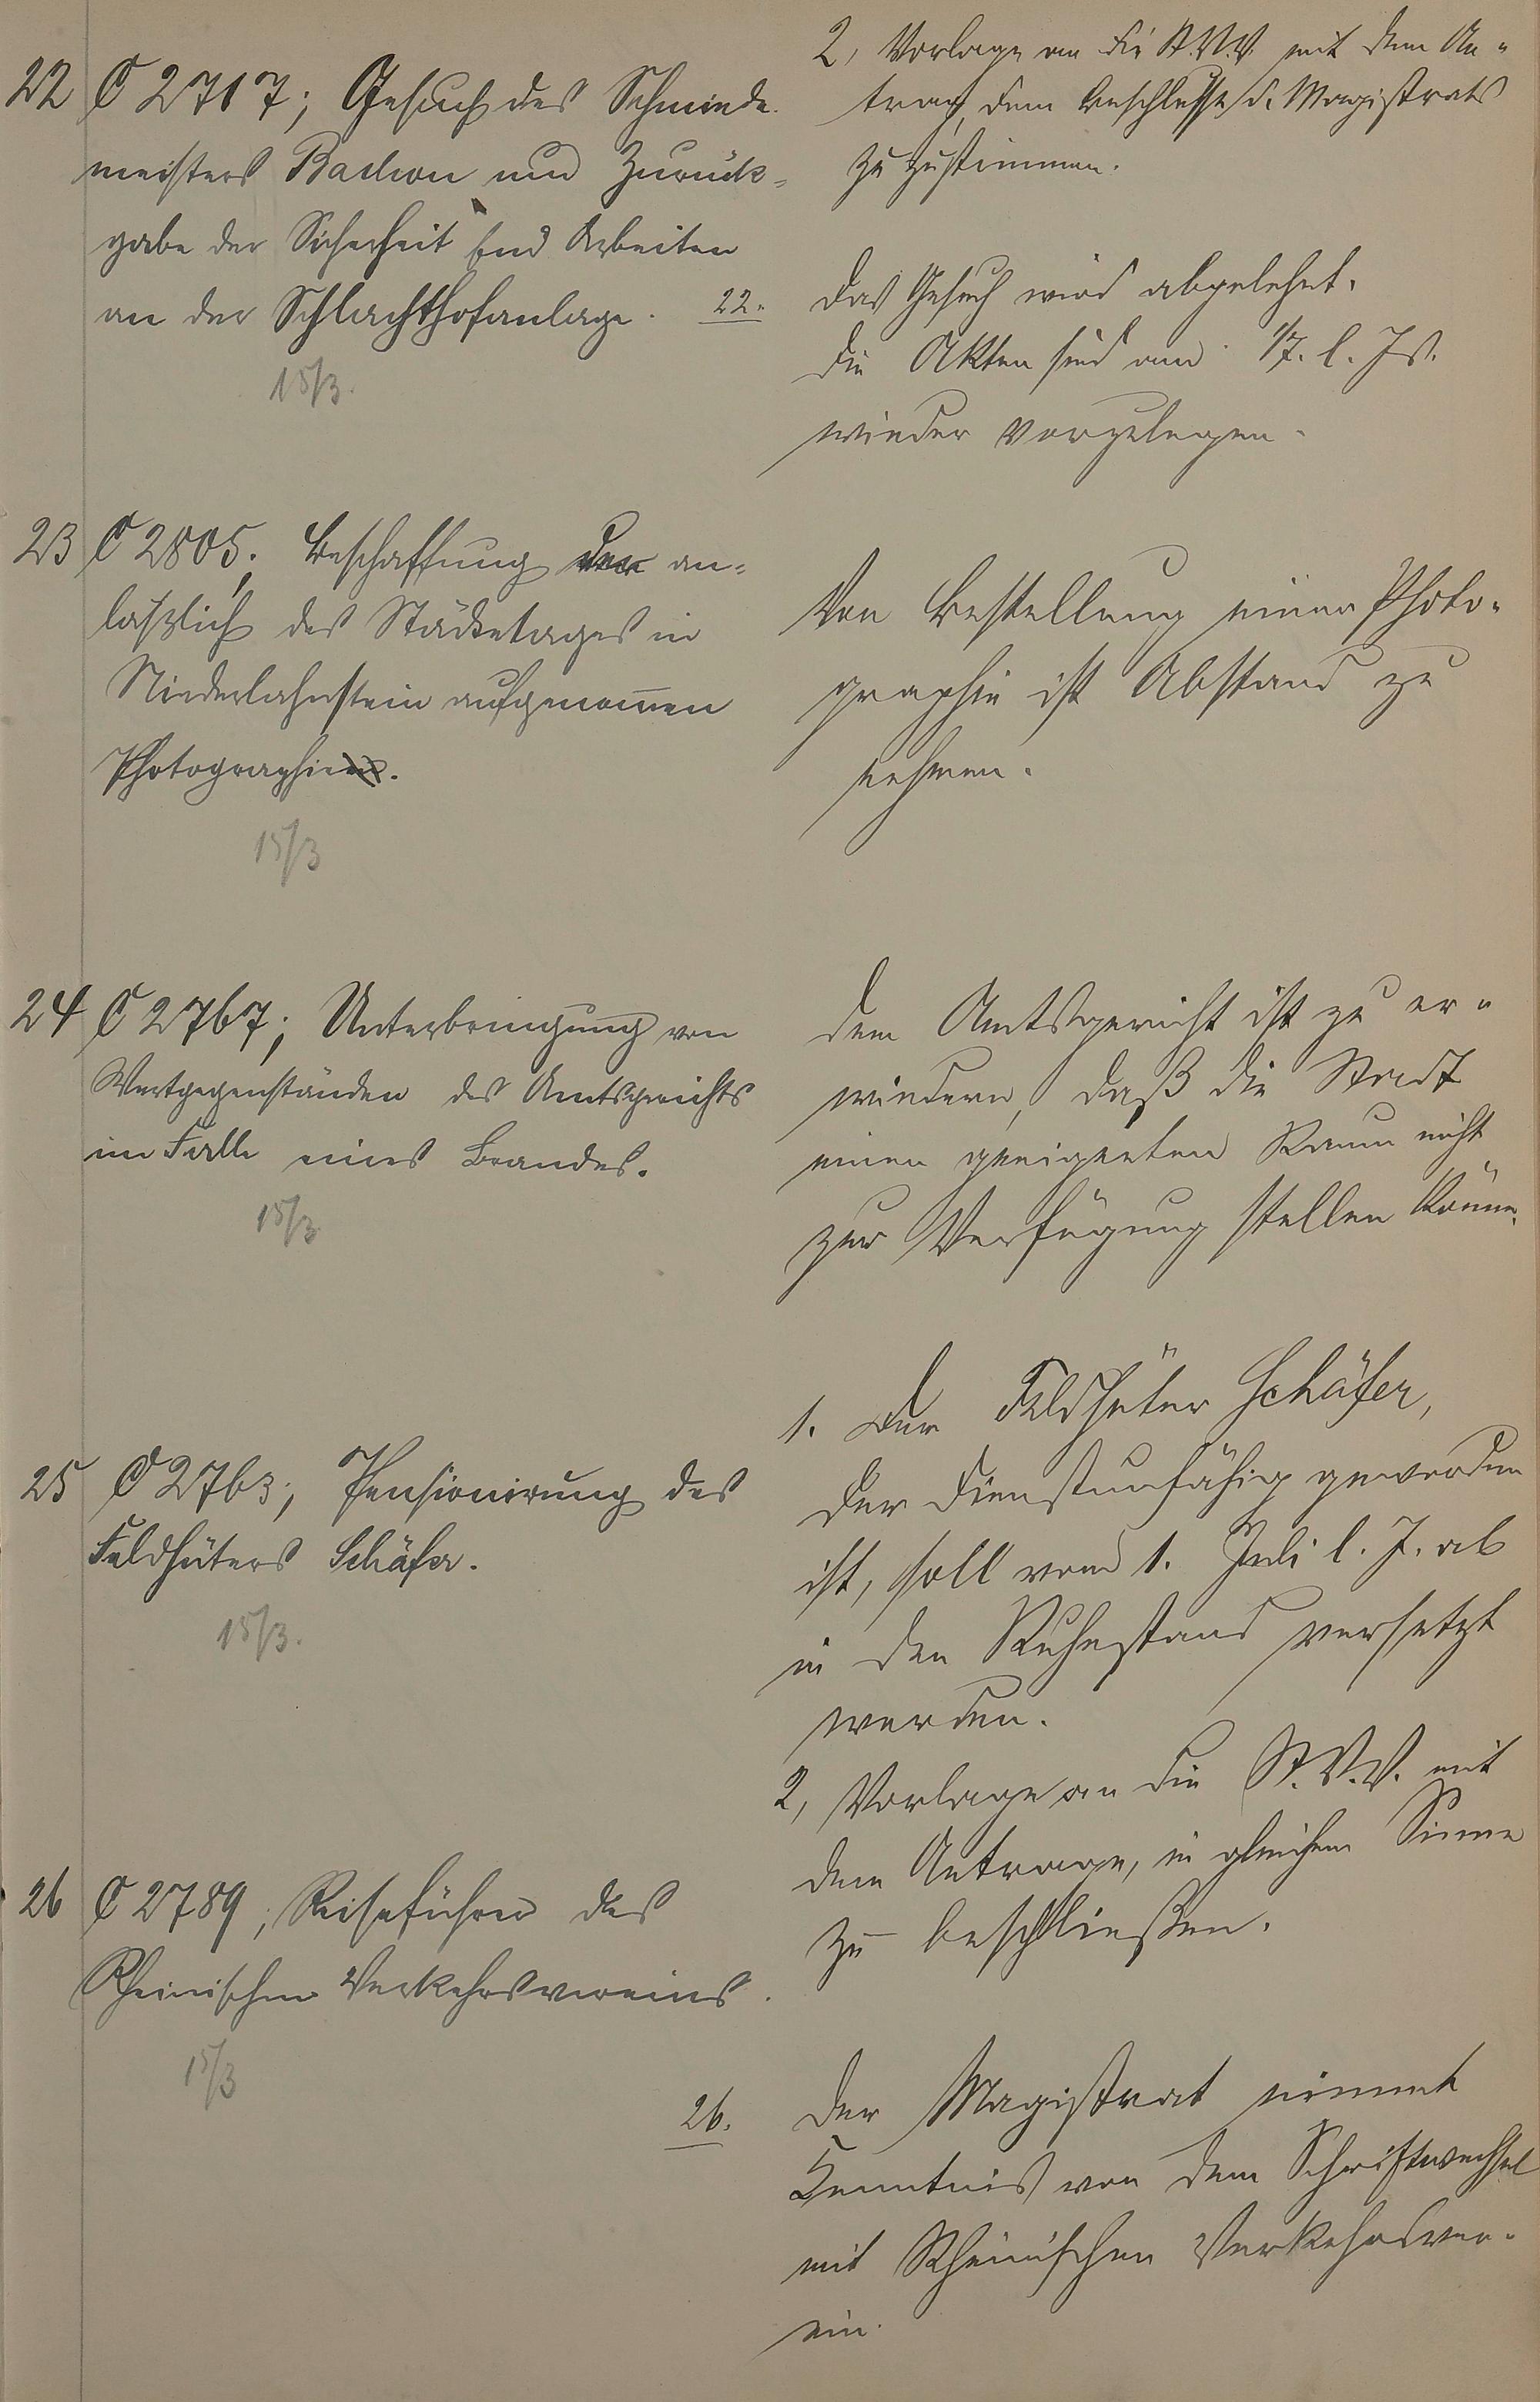 2, Vorlage an die St.V.V. mit dem An-
trag, dem Beschlusse d. Magistrats
zuzustimmen.
22 C 2717; Gesuch des Schmiede-
meisters um Zurück-
gabe der Sicherheit Arbeiten
an der Schlachthofanlage.
15/3.
22. Das Gesuch wird abgelehnt.
Die Akten sind am 1/7. l. Js.
wieder vorzulegen.
23 C 2805; Beschaffung der an-
läßlich des Städtetages in
Niederlahnstein aufgenommen
Photographien.
15/3
Von Bestellung einer Photo-
graphie ist Abstand zu
nehmen.
24 C 2767; Unterbringung von
Wertgegenständen des Amtsgerichts
im Falle eines Brandes.
15/3
Dem Amtsgericht ist zu er-
widern, daß die Stadt
einen geeigneten Raum nicht
zur Verfügung stellen könne.
25 C 2763; Pensionirung des
Feldhüters Schäfer.
15/3.
1. Der Feldhüter Schäfer,
der dienstunfähig geworden
ist, soll vom 1. Juli l. J. ab
in den Ruhestand versetzt
werden.
2, Vorlage an die St.V.V. mit
dem Antrage, in gleichem Sinne
zu beschließen.
26 C 2789; Reiseführer des
Rheinischen Verkehrsvereins.
15/3
26. Der Magistrat nimmt
Kenntnis von dem Schriftwechsel
mit Rheinischen Verkehrsver-
ein.